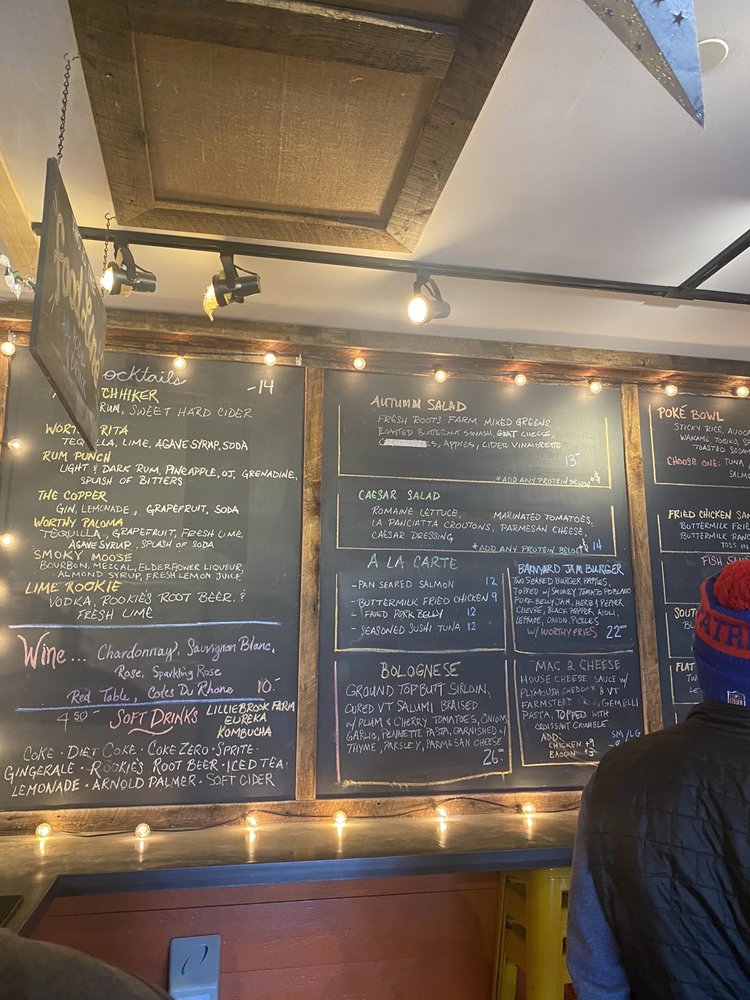 food
ocktails -14
CHHIKER
RUM, SWEET HARD CIDER
WORTH RITA
TEQUILA, LIME, AGAVE SYRUP, SODA
RUM PUNCH
LIGHT & DARK RUM, PINEAPPLE, OJ, GRENADINE,
SPLASH OF BITTERS
THE COPPER
GIN, LEMONADE, GRAPEFRUIT, SODA
WORTHY PALOMA
TEQUILLA, GRAPEFRUIT, FRESH LIME,
AGAVE SYRUP, SPLASH OF SODA
SMOKY MOOSE
BOURBON, MEZCAL, ELDERFLOWER LIQUEUR,
ALMOND SYRUP, FRESH LEMON JUICE
LIME ROOKIE
VODKA, ROOKIE'S ROOT BEER, &
FRESH LIME
Wine... Chardonnay, Sauvignon Blanc,
Rose, Sparkling Rose
Red Table, Cotes Du Rhone 10.-
4.50- SOFT DRINKS LILLIEBROOK FARM
EUREKA
KOMBUCHA
COKE · DIET COKE · COKE ZERO · SPRITE ·
GINGERALE · ROOKIE'S ROOT BEER · ICED TEA
LEMONADE · ARNOLD PALMER · SOFT CIDER
AUTUMN SALAD
FRESH ROOTS FARM MIXED GREENS,
ROASTED BUTTERNUT SQUASH, GOAT CHEESE,
APPLES, CIDER VINAIGRETTE
15-
*ADD ANY PROTEIN BELOW
CAESAR SALAD
ROMAINE LETTUCE, MARINATED TOMATOES,
LA PANCIATTA CROUTONS, PARMESAN CHEESE,
CAESAR DRESSING
*ADD ANY PROTEIN BELOW 14
A LA CARTE
- PAN SEARED SALMON 12
- BUTTERMILK FRIED CHICKEN 9
- FRIED PORK BELLY 12
- SEASONED SUSHI TUNA 12
BARNYARD JAM BURGER
TWO SEARED BURGER PATTIES,
TOPPED W/ SMOKEY TOMATO POBLANO
PORK BELLY JAM, HERB & PEPPER
CHEVRE, BLACK PEPPER AIOLI,
LETTUCE, ONION, PICKLES
W/ WORTHY FRIES 22
BOLOGNESE
GROUND TOP BUTT SIRLOIN,
CURED VT SALUMI BRAISED
W/ PLUM & CHERRY TOMATOES, ONIONS,
GARLIC, PENNETTE PASTA, GARNISHED W/
THYME, PARSLEY, PARMESAN CHEESE
26-
MAC & CHEESE
HOUSE CHEESE SAUCE W/
PLYMOUTH CHEDDAR & VT
FARMSTEAD GEMELLI
PASTA, TOPPED WITH
CROISSANT CRUMBLE
ADD SM/LG
CHICKEN +9
BACON
POKÉ BOWL
STICKY RICE, AVOCA
WAKAME, TOBIKO, S
TOASTED SESAM
CHOOSE ONE: TUNA,
SALMO
FRIED CHICKEN SAN
BUTTERMILK FRIE
BUTTERMILK RANC
TOSS IN
FISH SAN
SOUT
FLAT
ATH
NFL